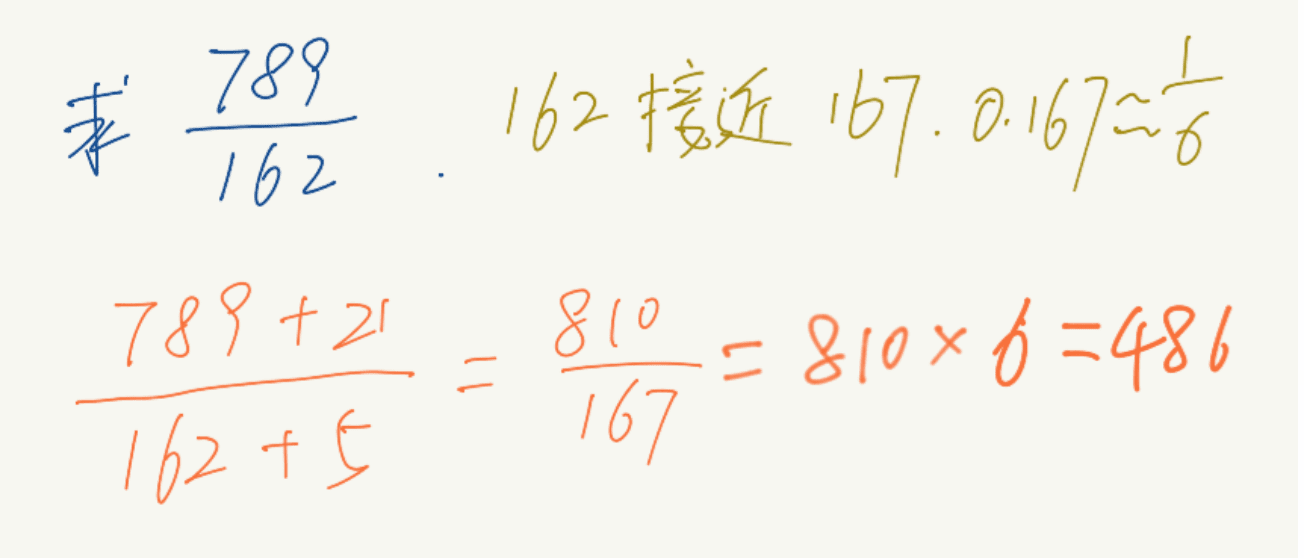 求 789/162 . 162接近167. 0.167≈1/6
(789+21)/(162+5) = 810/167 = 810×6=486